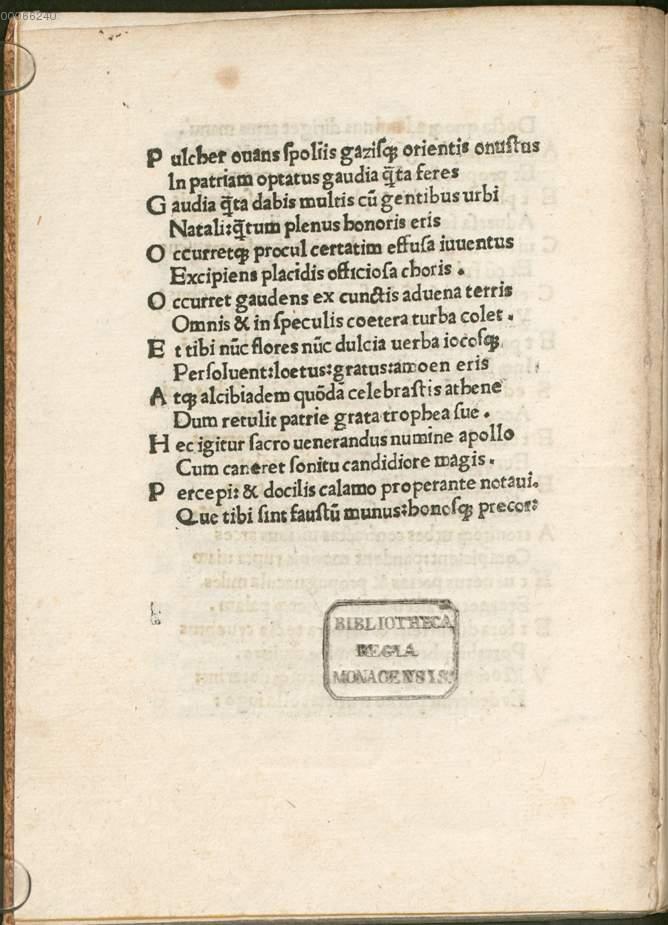 00066240
Pulcher ouans spoliis gazisqꝫ orientis onustus
In patriam optatus gaudia q̄ta feres
Gaudia q̄ta dabis multis cū gentibus urbi
Natali:q̄tum plenus honoris eris
Occurretqꝫ procul certatim effusa iuuentus
Excipiens placidis officiosa choris .
Occurret gaudens ex cunctis aduena terris
Omnis & in speculis coetera turba colet .
Et tibi nūc flores nūc dulcia uerba iocosqꝫ
Persoluent:loetus:gratus:amoen eris
Atqꝫ alcibiadem quōda celebrastis athene
Dum retulit patrie grata trophea sue .
Hec igitur sacro uenerandus numine apollo
Cum caneret sonitu candidiore magis .
Percepi: & docilis calamo properante notaui.
Que tibi sint faustū munus:honosqꝫ precor:
BIBLIOTHECA
REGIA
MONACENSIS.